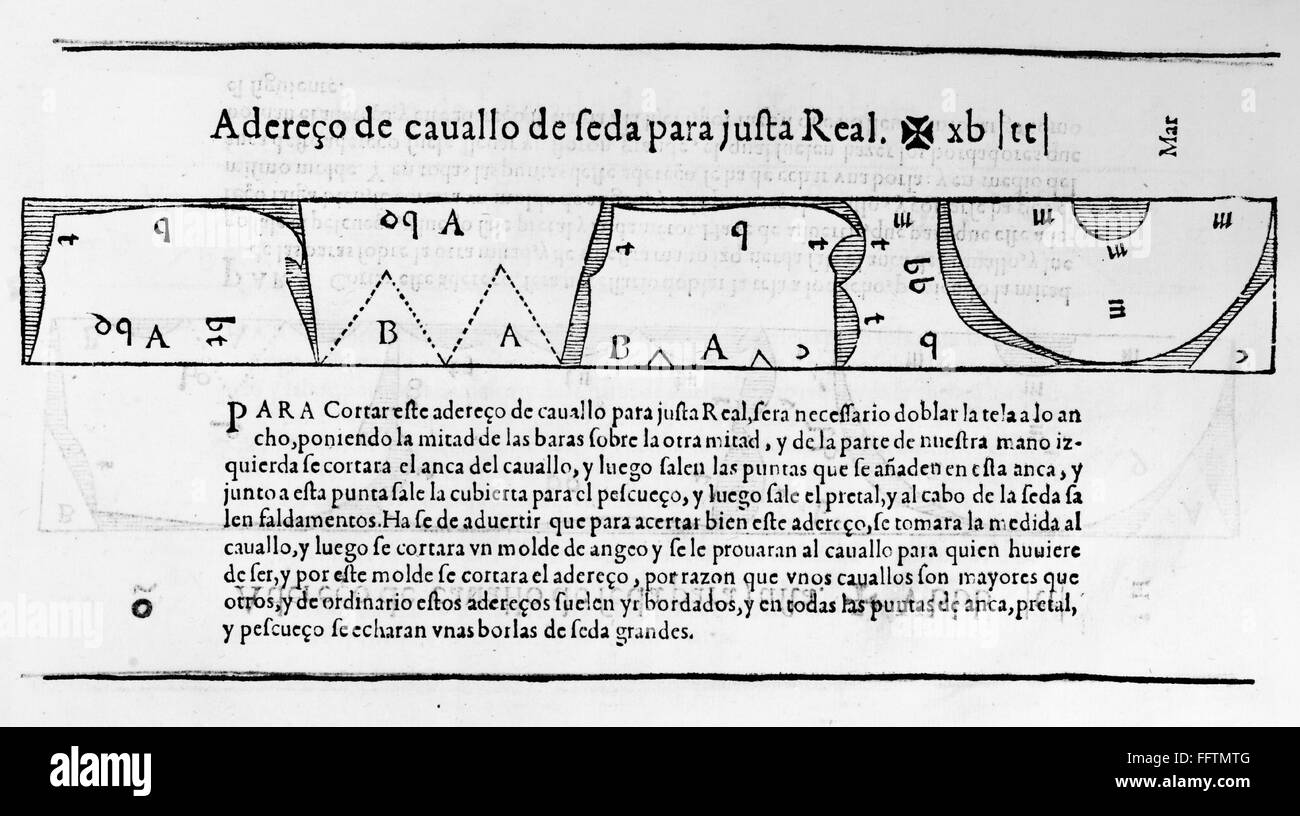 Adereço de cauallo de ſeda para juſta Real. ✠ xb |tt|
Mar
t b A bq A b t
t m m m
bq A bt B A B A c t bb b m m c
PARA Cortar eſte adereço de cauallo para juſta Real, ſera neceſſario doblar la tela a lo an
cho, poniendo la mitad de las baras ſobre la otra mitad, y de la parte de nueſtra mano iz-
quierda ſe cortara el anca del cauallo, y luego ſalen las puntas que ſe añaden en eſta anca, y
junto a eſta punta ſale la cubierta para el peſcueço, y luego ſale el pretal, y al cabo de la ſeda ſa
len faldamentos. Ha ſe de aduertir que para acertar bien eſte adereço, ſe tomara la medida al
cauallo, y luego ſe cortara vn molde de angeo y ſe le prouaran al cauallo para quien huuiere
de ſer, y por eſte molde ſe cortara el adereço, por razon que vnos cauallos ſon mayores que
otros, y de ordinario eſtos adereços ſuelen yr bordados, y en todas las puntas de anca, pretal,
y peſcueço ſe echaran vnas borlas de ſeda grandes.
alamy stock photo
FFTMTG
www.alamy.com